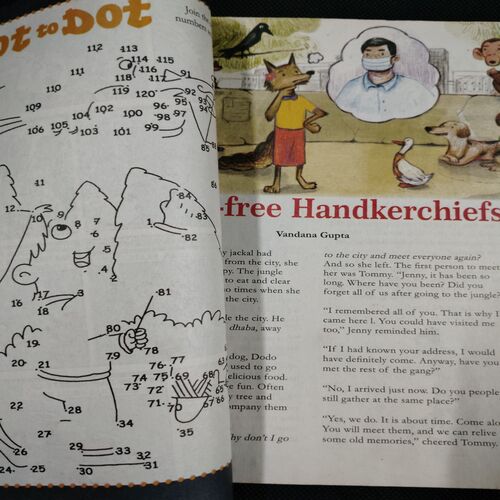 ot to Dot
Join the
numbers
112 113
114 115
111 116
110 118 117 91
109 119 120 92
102 104 100 96 95 93
97 94
106 105 103 101 99 98
85
86
11
12 10
84
83
9 8 7
6
5
1
82
4 2
3
16 17
18
81
80
19
79 78
20 21
77
76
74 75 69 68
73
72
71 70 67
65
66
22
23
28
34
26 27
35
24 25 29 33 32
30 31
-free Handkerchiefs
Vandana Gupta
jackal had
from the city, she
The jungle
to eat and clear
times when she
the city.
the city. He
dhaba, away
dog, Dodo
used to go
delicious food.
fun. Often
tree and
them
don't I go
to the city and meet everyone again?
And so she left. The first person to meet
her was Tommy. "Jenny, it has been so
long. Where have you been? Did you
forget all of us after going to the jungle?
"I remembered all of you. That is why I
came here l. You could have visited me
too," Jenny reminded him.
"If I had known your address, I would
have definitely come. Anyway, have you
met the rest of the gang?"
"No, I arrived just now. Do you people
still gather at the same place?"
"Yes, we do. It is about time. Come
You will meet them, and we can relive
some old memories," cheered Tommy.